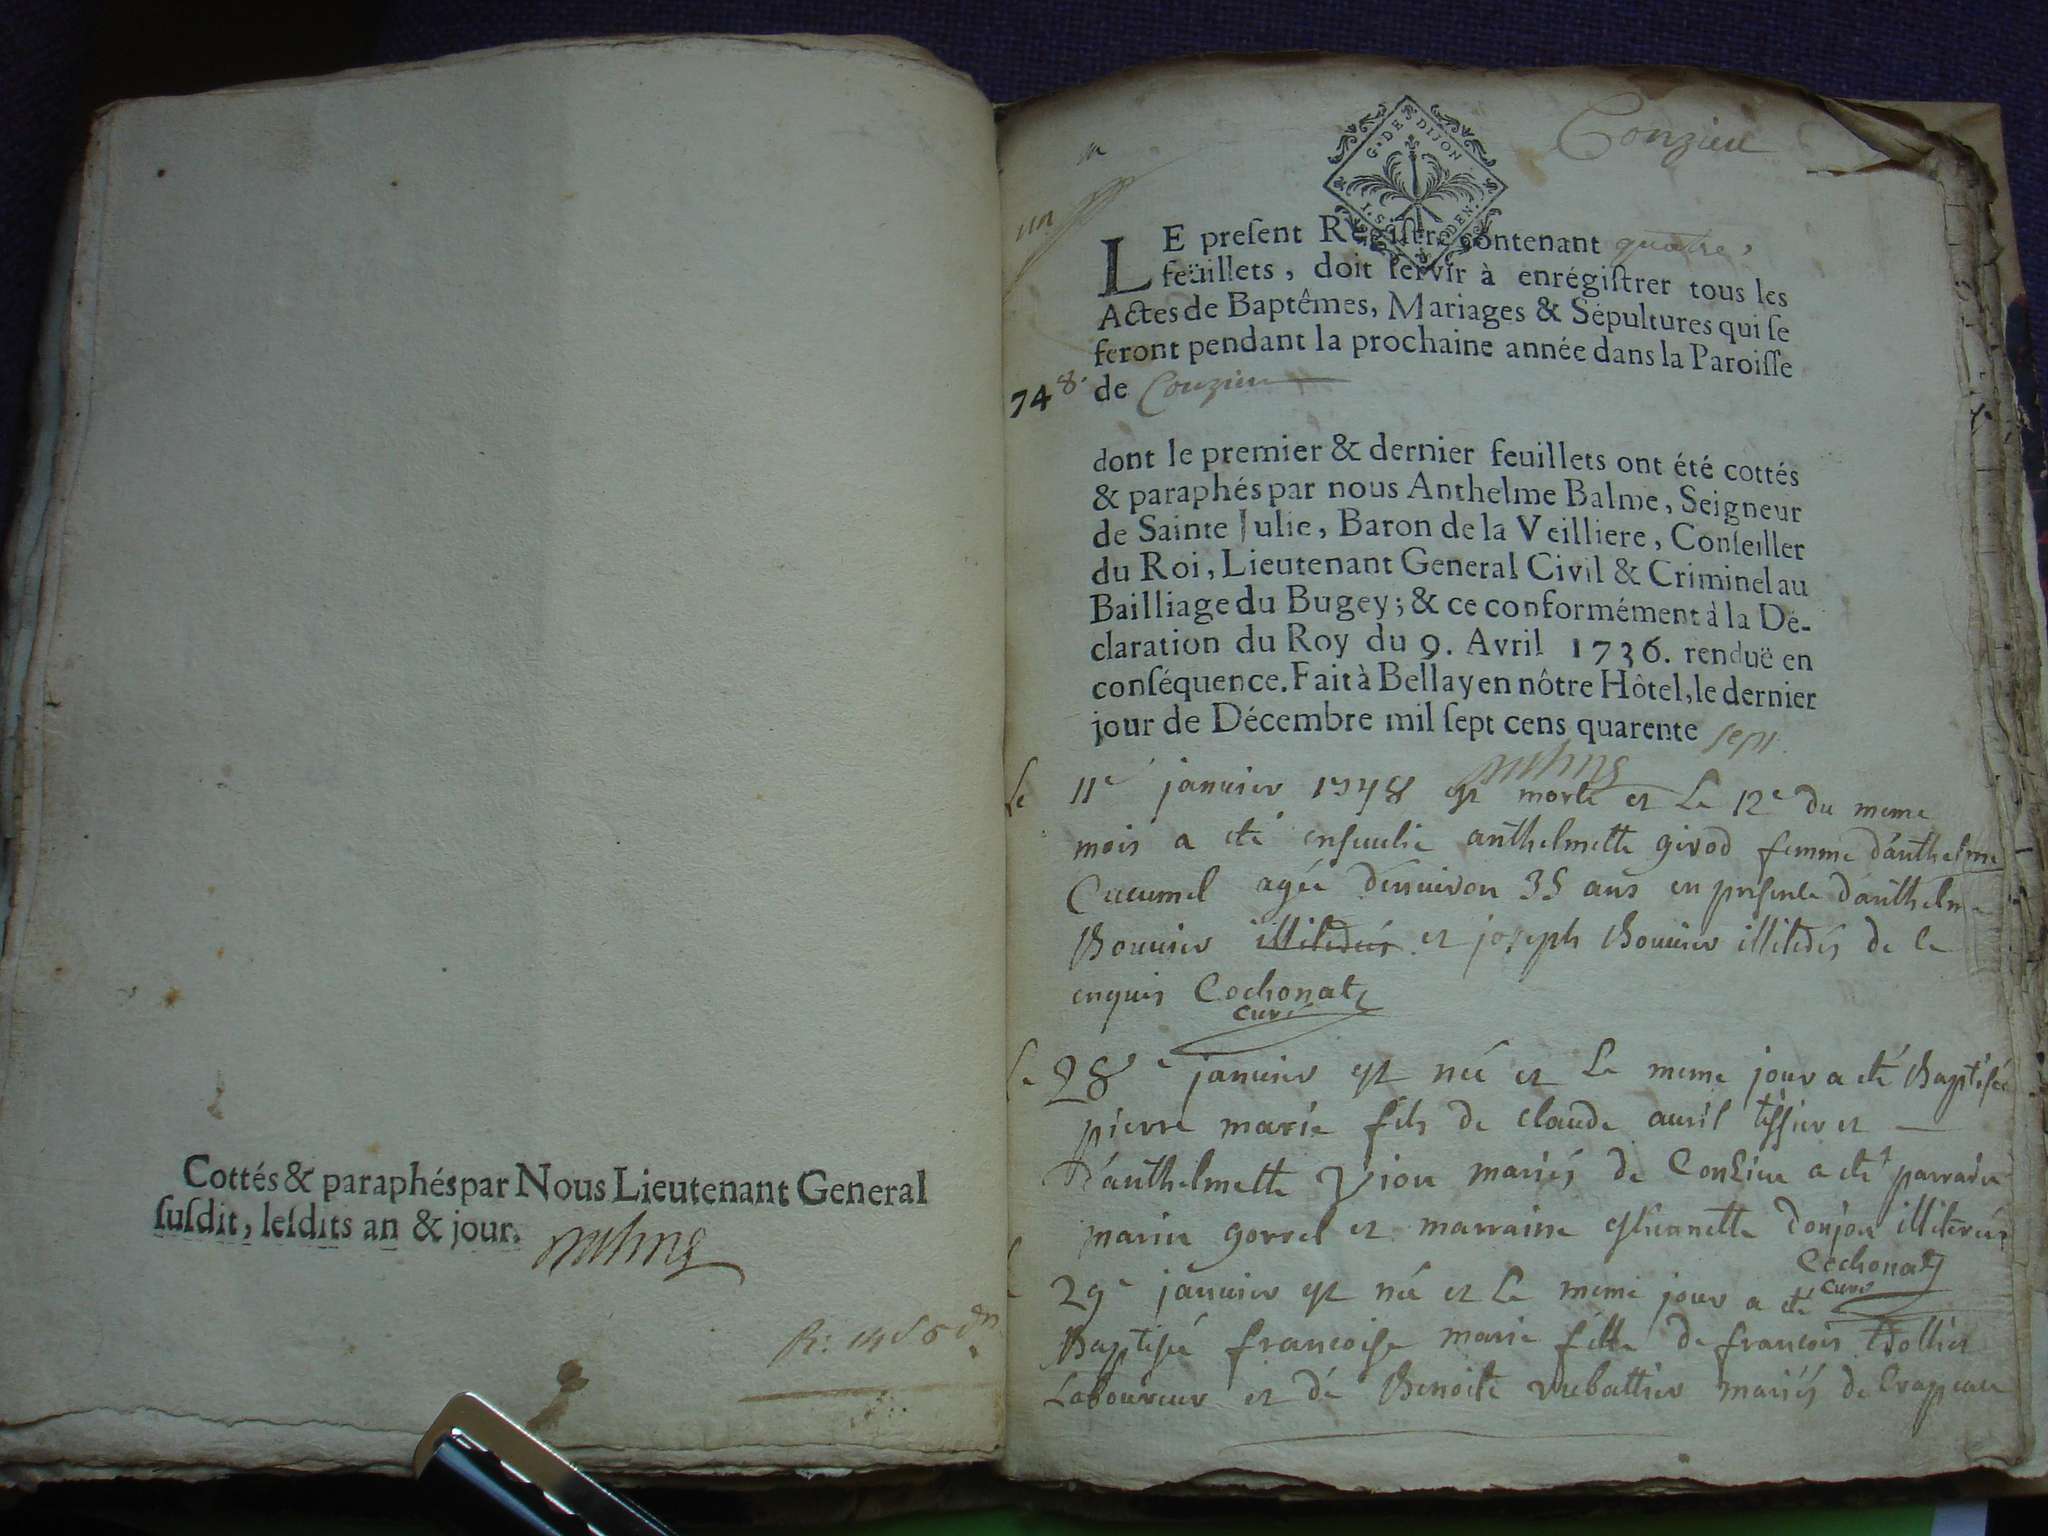 Cottés & paraphés par Nous Lieutenant General
susdit, lesdits an & jour.
Conzieu
G. DE DIJON
LE present Registre contenant quatre
feüillets, doit servir à enrégistrer tous les
Actes de Baptêmes, Mariages & Sepultures qui se
feront pendant la prochaine année dans la Paroisse
748. de Conzieu
dont le premier & dernier feuillets ont été cottés
& paraphés par nous Anthelme Balme, Seigneur
de Sainte Julie, Baron de la Veilliere, Conseiller
du Roi, Lieutenant General Civil & Criminel au
Bailliage du Bugey; & ce conformément à la Dé-
claration du Roy du 9. Avril 1736. renduë en
conséquence. Fait à Bellay en nôtre Hôtel, le dernier
jour de Décembre mil sept cens quarente sept
Le 11e janvier 1748 est morte et Le 12e du meme
mois a eté ensevelie anthelmette girod femme d'anthelme
agée d'environ 35 ans en presence d'anthelme
Bouvier et joseph Bouvier de ce
enquis Cochonat
curé
Le 28e janvier est né et Le meme jour a eté Baptisé
pierre marie fils de claude avril tissier et
d'anthelmette mariés de Conzieu a eté parrain
gorrel et marraine
Cochonat
curé
29e janvier est née et Le meme jour a eté
Baptisée francoise marie fille de francois
Laboureur et de Benoite mariés de